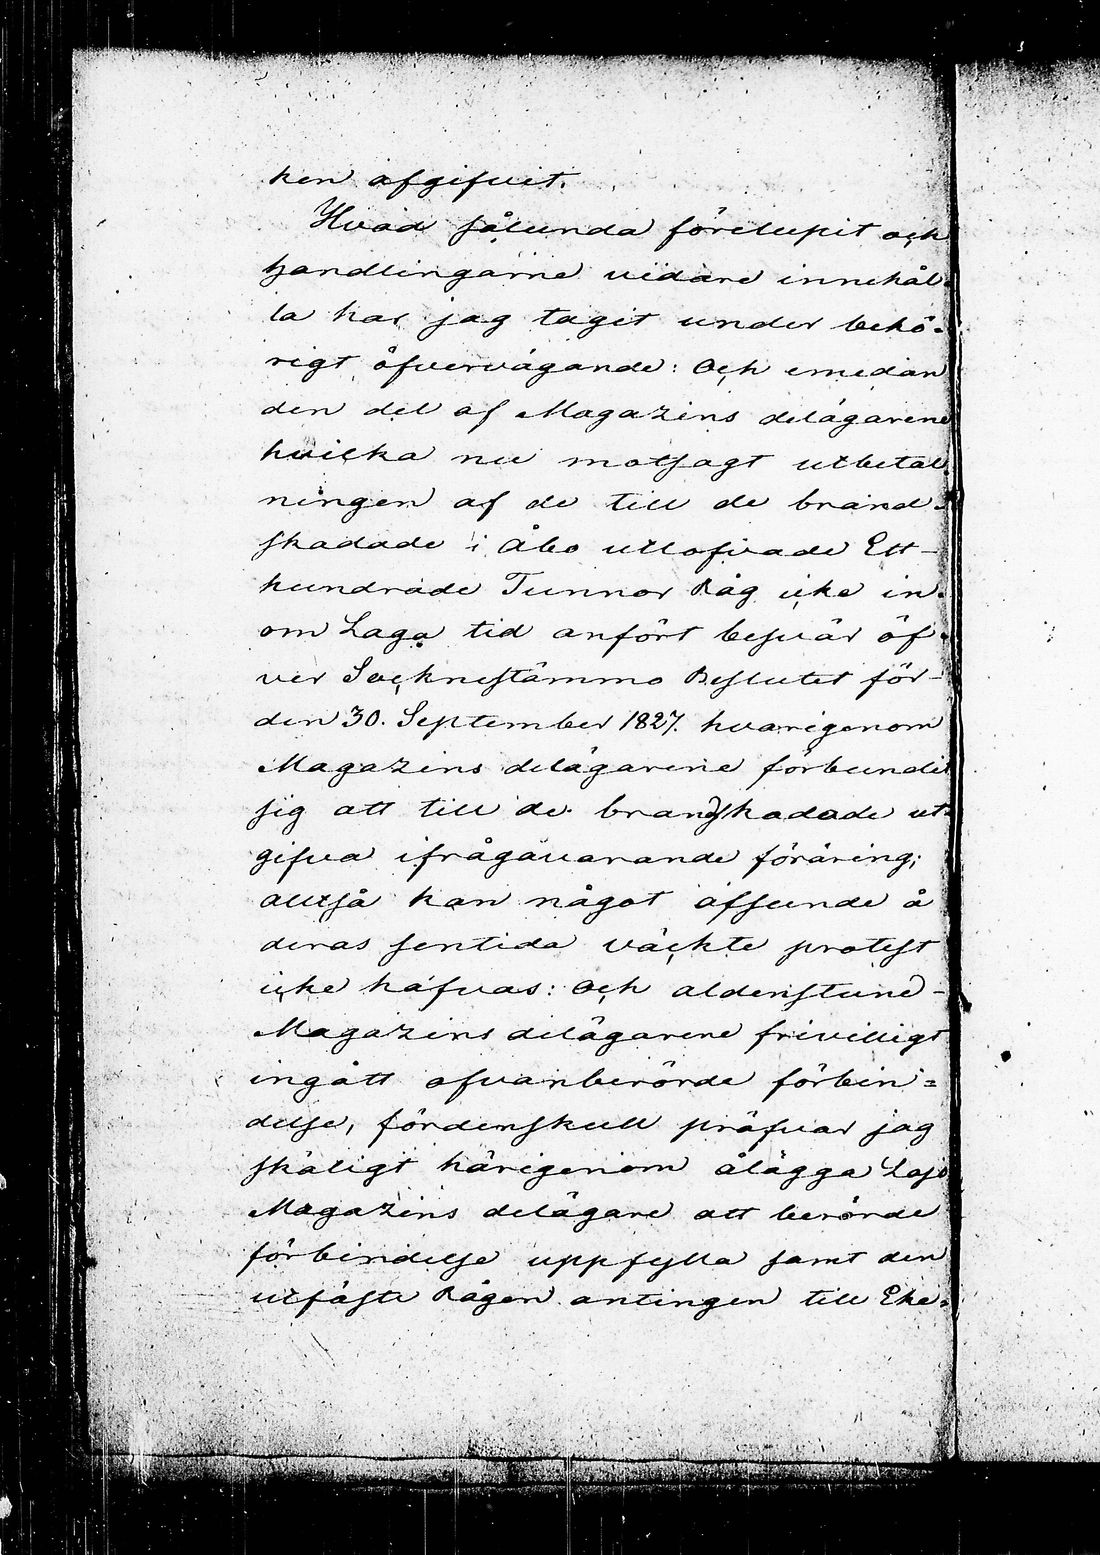 ken afgifvit.
Hvad sålunda förelupit och
handlingarne vidare innehål-
la har jag tagit under behö-
rigt öfvervägande: Och emedan
den del af Magazins delägarene
hvilka nu motsagt utbetal-
ningen af de till de brand-
skadade i Åbo utlofvade Ett-
hundrade Tunnor Råg icke in-
om Laga tid anfört besvär öf-
ver Socknestämmo Beslutet för-
den 30. September 1827. hvarigenom
Magazins delägarene förbundit
sig att till de brandskadade ut-
gifva ifrågavarande föräring;
altså kan något afseende å
deras sentida väckte protest
icke hafvas: Och aldenstund-
Magazins delägarene frivilligt
ingått ofvanberörde förbin=
delse, fördenskull pröfvar jag
skäligt härigenom ålägga Lojo
Magazins delägare att berörde
förbindelse uppfylla samt den
utfäste Rågen antingen till Eke-